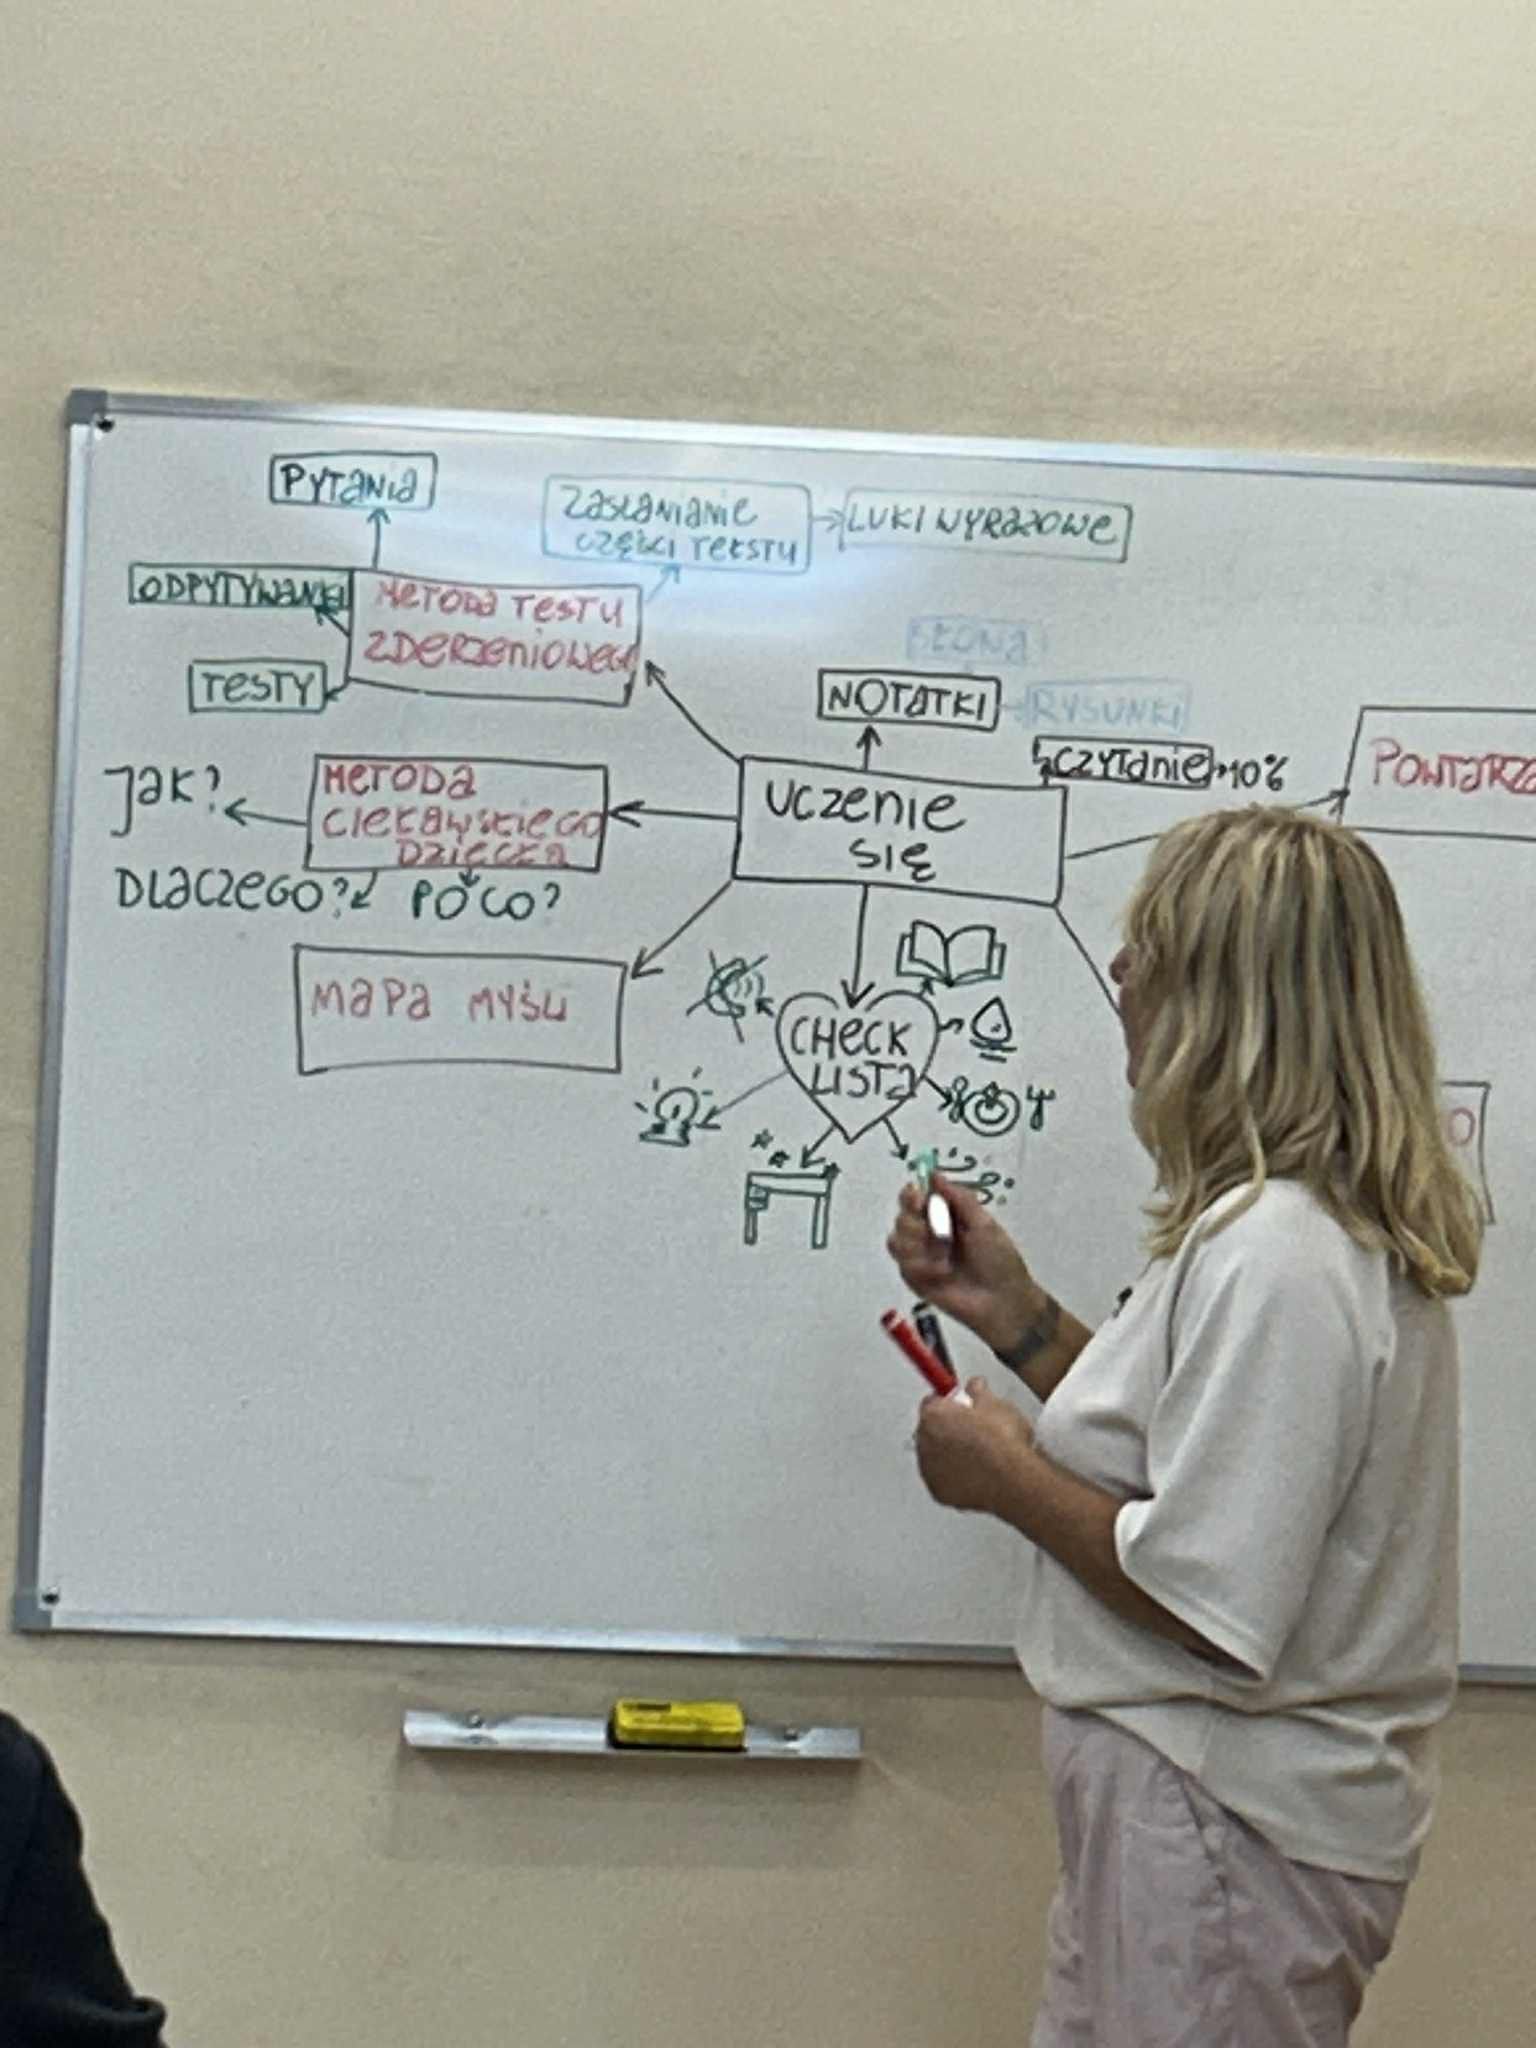 PYTANIA
ZASŁANIANIE
CZĘŚCI TEKSTU
LUKI WYRAZOWE
ODPYTYWANIE
METODA TESTU
ZDERZENIOWEGO
TESTY
SŁOWA
NOTATKI
RYSUNKI
CZYTANIE
10%
JAK?
METODA
CIEKAWSKIEGO
DZIECKA
UCZENIE
SIĘ
DLACZEGO?
PO CO?
MAPA MYŚLI
CHECK
LISTA